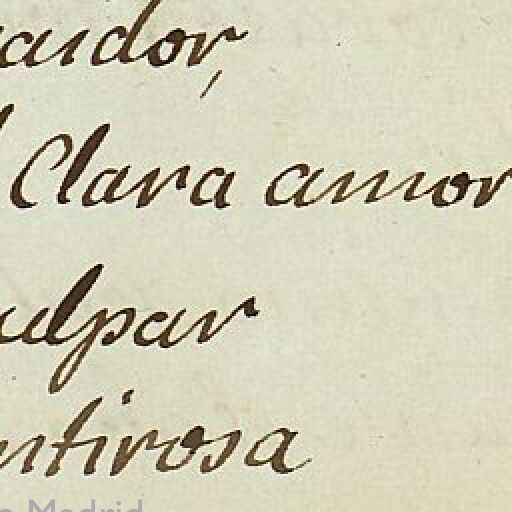 aidor,
Clara amor
ulpar
ntirosa
Madrid